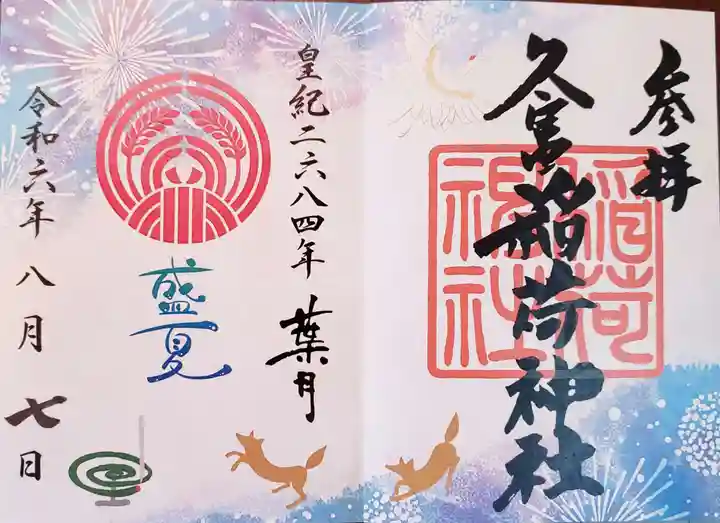 参拝
久富稲荷神社
稲荷
神社
皇紀二六八四年 葉月
盛夏
令和六年 八月 七日